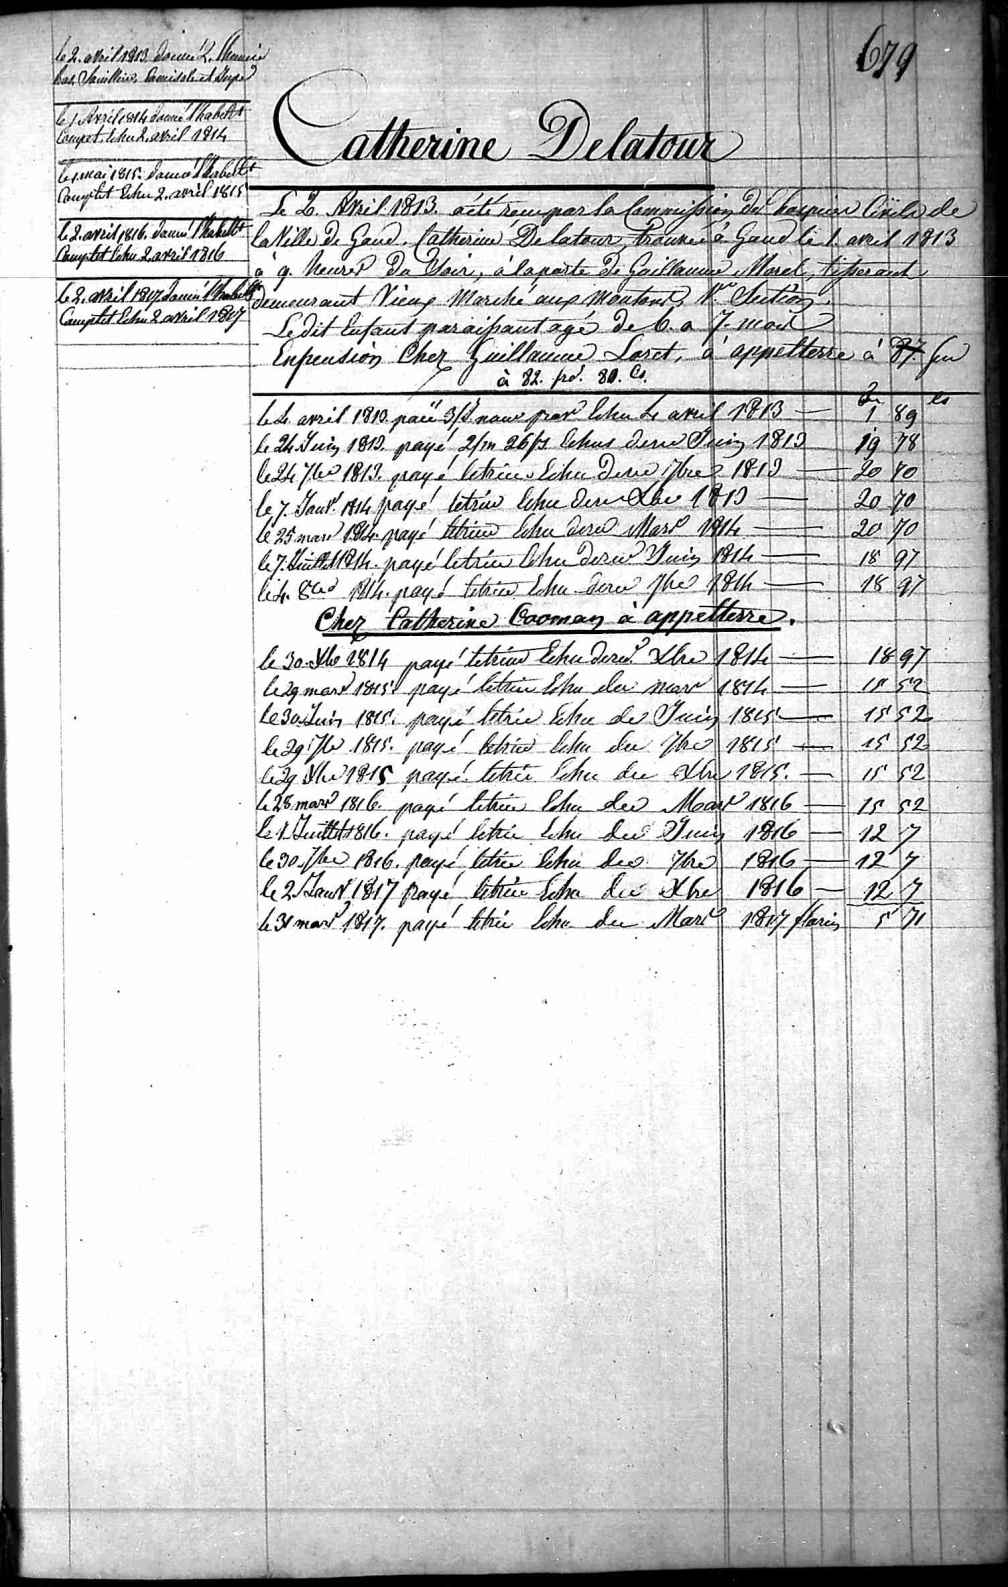 679
le 2. avril 1813. donné 2. Chemise
bas,
le 1 Avril 1814 donné l'habillt
Complet. Echu 2. avril 1814
le 1 mai 1815. donné l'habillt
Complet Echu 2. avril 1815
le 2. avril 1816. donné l'habillt
Complet Echu 2 avril 1816
le 2. avril 1817 donné l'habillt
Complet Echu 2 avril 1817
Catherine Delatour
Le 2. Avril 1813. a été reçu par la Commission des hospices Civils de
la Ville de Gand. Catherine Delatour, trouvée à Gand le 1. avril 1813
à 9. heures du Soir, à la porte de Guillaume Morel, tisserand
demeurant Vieux Marché aux moutons, Section.
Le dit Enfant paraissant agé de 6. a 7. mois
En pension Chez Guillaume Loret, à appelterre à 87. fr
à 82. frs. 80. Cs.
fr cs
le 4 avril 1813. payé Echu 4 avril 1813 — 1 89
le 24 Juin 1813. payé 2/m 26/js Echus dernr Juin 1813 19 78
le 24 7bre 1813. payé letrim Echu dernr 7bre 1813 — 20 70
le 7. Janvr 1814 payé letrim Echu dernr Xbre 1813 — 20 70
le 25 mars 1814. payé letrim Echu dernr Mars 1814 — 20 70
le 7. Juillet 1814. payé letrim Echu dernr Juin 1814 — 18 97
le 4. 8bre 1814. payé letrim Echu dernr 7bre 1814 — 18 97
Chez Catherine Cooman à appelterre.
le 30. Xbre 1814 payé letrim Echu dernr Xbre 1814 — 18 97
le 29 mars 1815. payé letrim Echu der mars 1814 — 15 52
le 30. Juin 1815. payé letrim Echu der Juin 1815 — 15 52
le 29 7bre 1815. payé letrim Echu der 7bre 1815 — 15 52
le 29 Xbre 1815 payé letrim Echu der Xbre 1815. — 15 52
le 28 mars 1816. payé letrim Echu der Mars 1816 — 15 52
le 1. Juillet 1816. payé letrim Echu der Juin 1816 — 12 7
le 30. 7bre 1816. payé letrim Echu der 7bre 1816 — 12 7
le 2 Janvr 1817 payé letrim Echu der Xbre 1816 — 12 7
le 31 mars 1817. payé letrim Echu der Mars 1817 florins 5 71